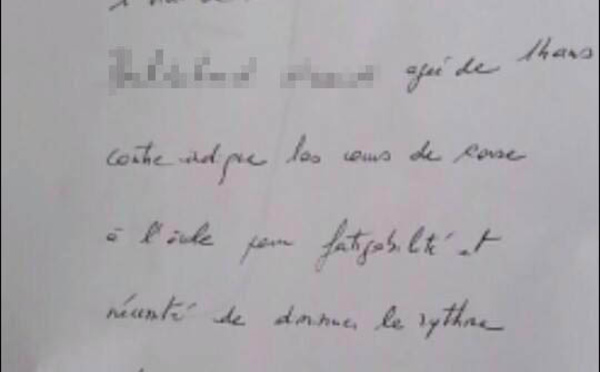 agée de 14 ans
contre indique les cours de
à l'école pour fatigabilité et
nécessité de donner le rythme